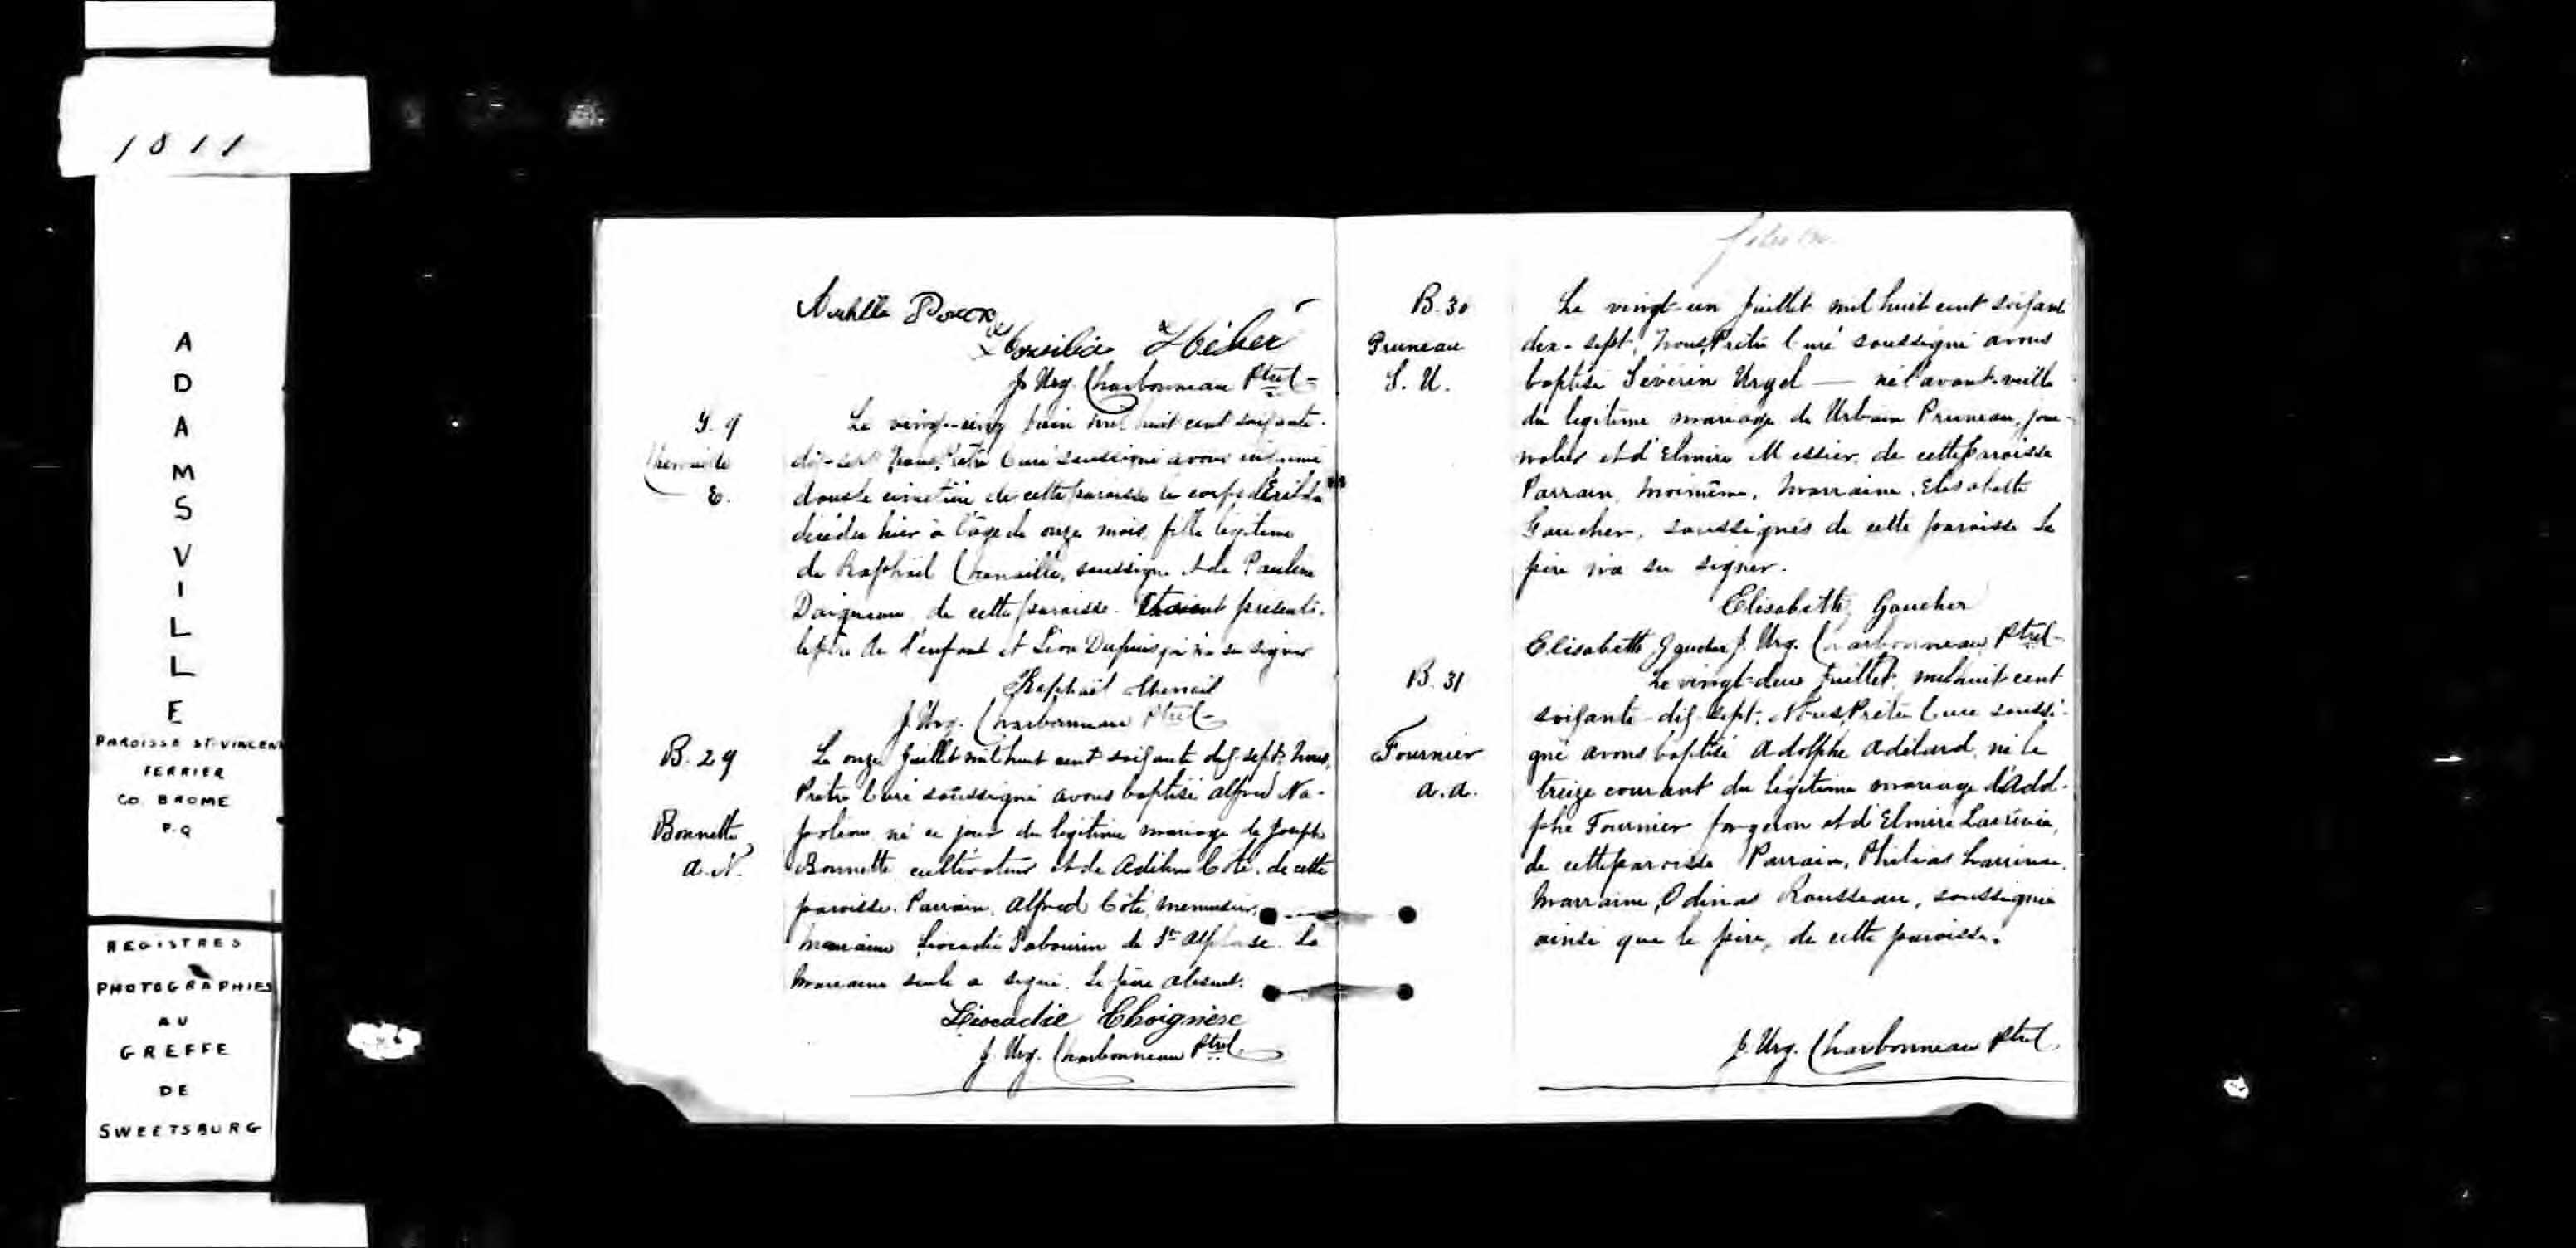 1811
ADAMSVILLE
PAROISSE ST-VINCENT
FERRIER
CO. BROME
P.Q
REGISTRES
PHOTOGRAPHIES
AU
GREFFE
DE
SWEETSBURG
Héber
J. Urg. Charbonneau Ptre
S. 9
E.
Le vingt-cinq juin mil huit cent soixante-
dix-sept Nous, Prêtre Curé soussigné avons inhumé
dans le cimetière de cette paroisse le corps d'Exilda
décédée hier à l'âge de onze mois, fille légitime
de Raphaël Chenaille, soussigné et de Pauline
Daigneau de cette paroisse. Etaient présents
le père de l'enfant et Léon Dupuis qui n'a su signer
Raphaël Chenail
J. Urg. Charbonneau Ptre
B. 29
Bonnette
A. N.
Le onze Juillet mil huit cent soixante dix-sept, Nous,
Prêtre Curé soussigné avons baptisé Alfred Na-
poléon, né ce jour du légitime mariage de Joseph
Bonnette cultivateur et de Adéline Côté, de cette
paroisse. Parrain, Alfred Côté, menuisier,
Marraine Léocadie Sabourin de St Alphonse. La
Marraine seule a signé. Le père absent.
Léocadie Choignière
J. Urg. Charbonneau Ptre
B. 30
Pruneau
S. U.
Le vingt-un Juillet mil huit cent soixante
dix-sept, Nous, Prêtre Curé soussigné avons
baptisé Sévérin Urgel — né l'avant-veille
du légitime mariage de Urbain Pruneau, jour-
nalier et d'Elmire Messier, de cette paroisse
Parrain, Moi-même, Marraine, Elisabette
Gaucher, soussignés de cette paroisse Le
père n'a su signer.
Elisabette Gaucher
Elisabette Gaucher J. Urg. Charbonneau Ptre
B. 31
Fournier
A. A.
Le vingt-deux Juillet, mil huit cent
soixante-dix-sept, Nous, Prêtre Curé soussi-
gné avons baptisé Adolphe Adélard, né le
treize courant du légitime mariage d'Adol-
phe Fournier forgeron et d'Elmire Larivière,
de cette paroisse Parrain, Philias
Marraine, Odinas Rousseau, soussignée
ainsi que le père, de cette paroisse.
J. Urg. Charbonneau Ptre